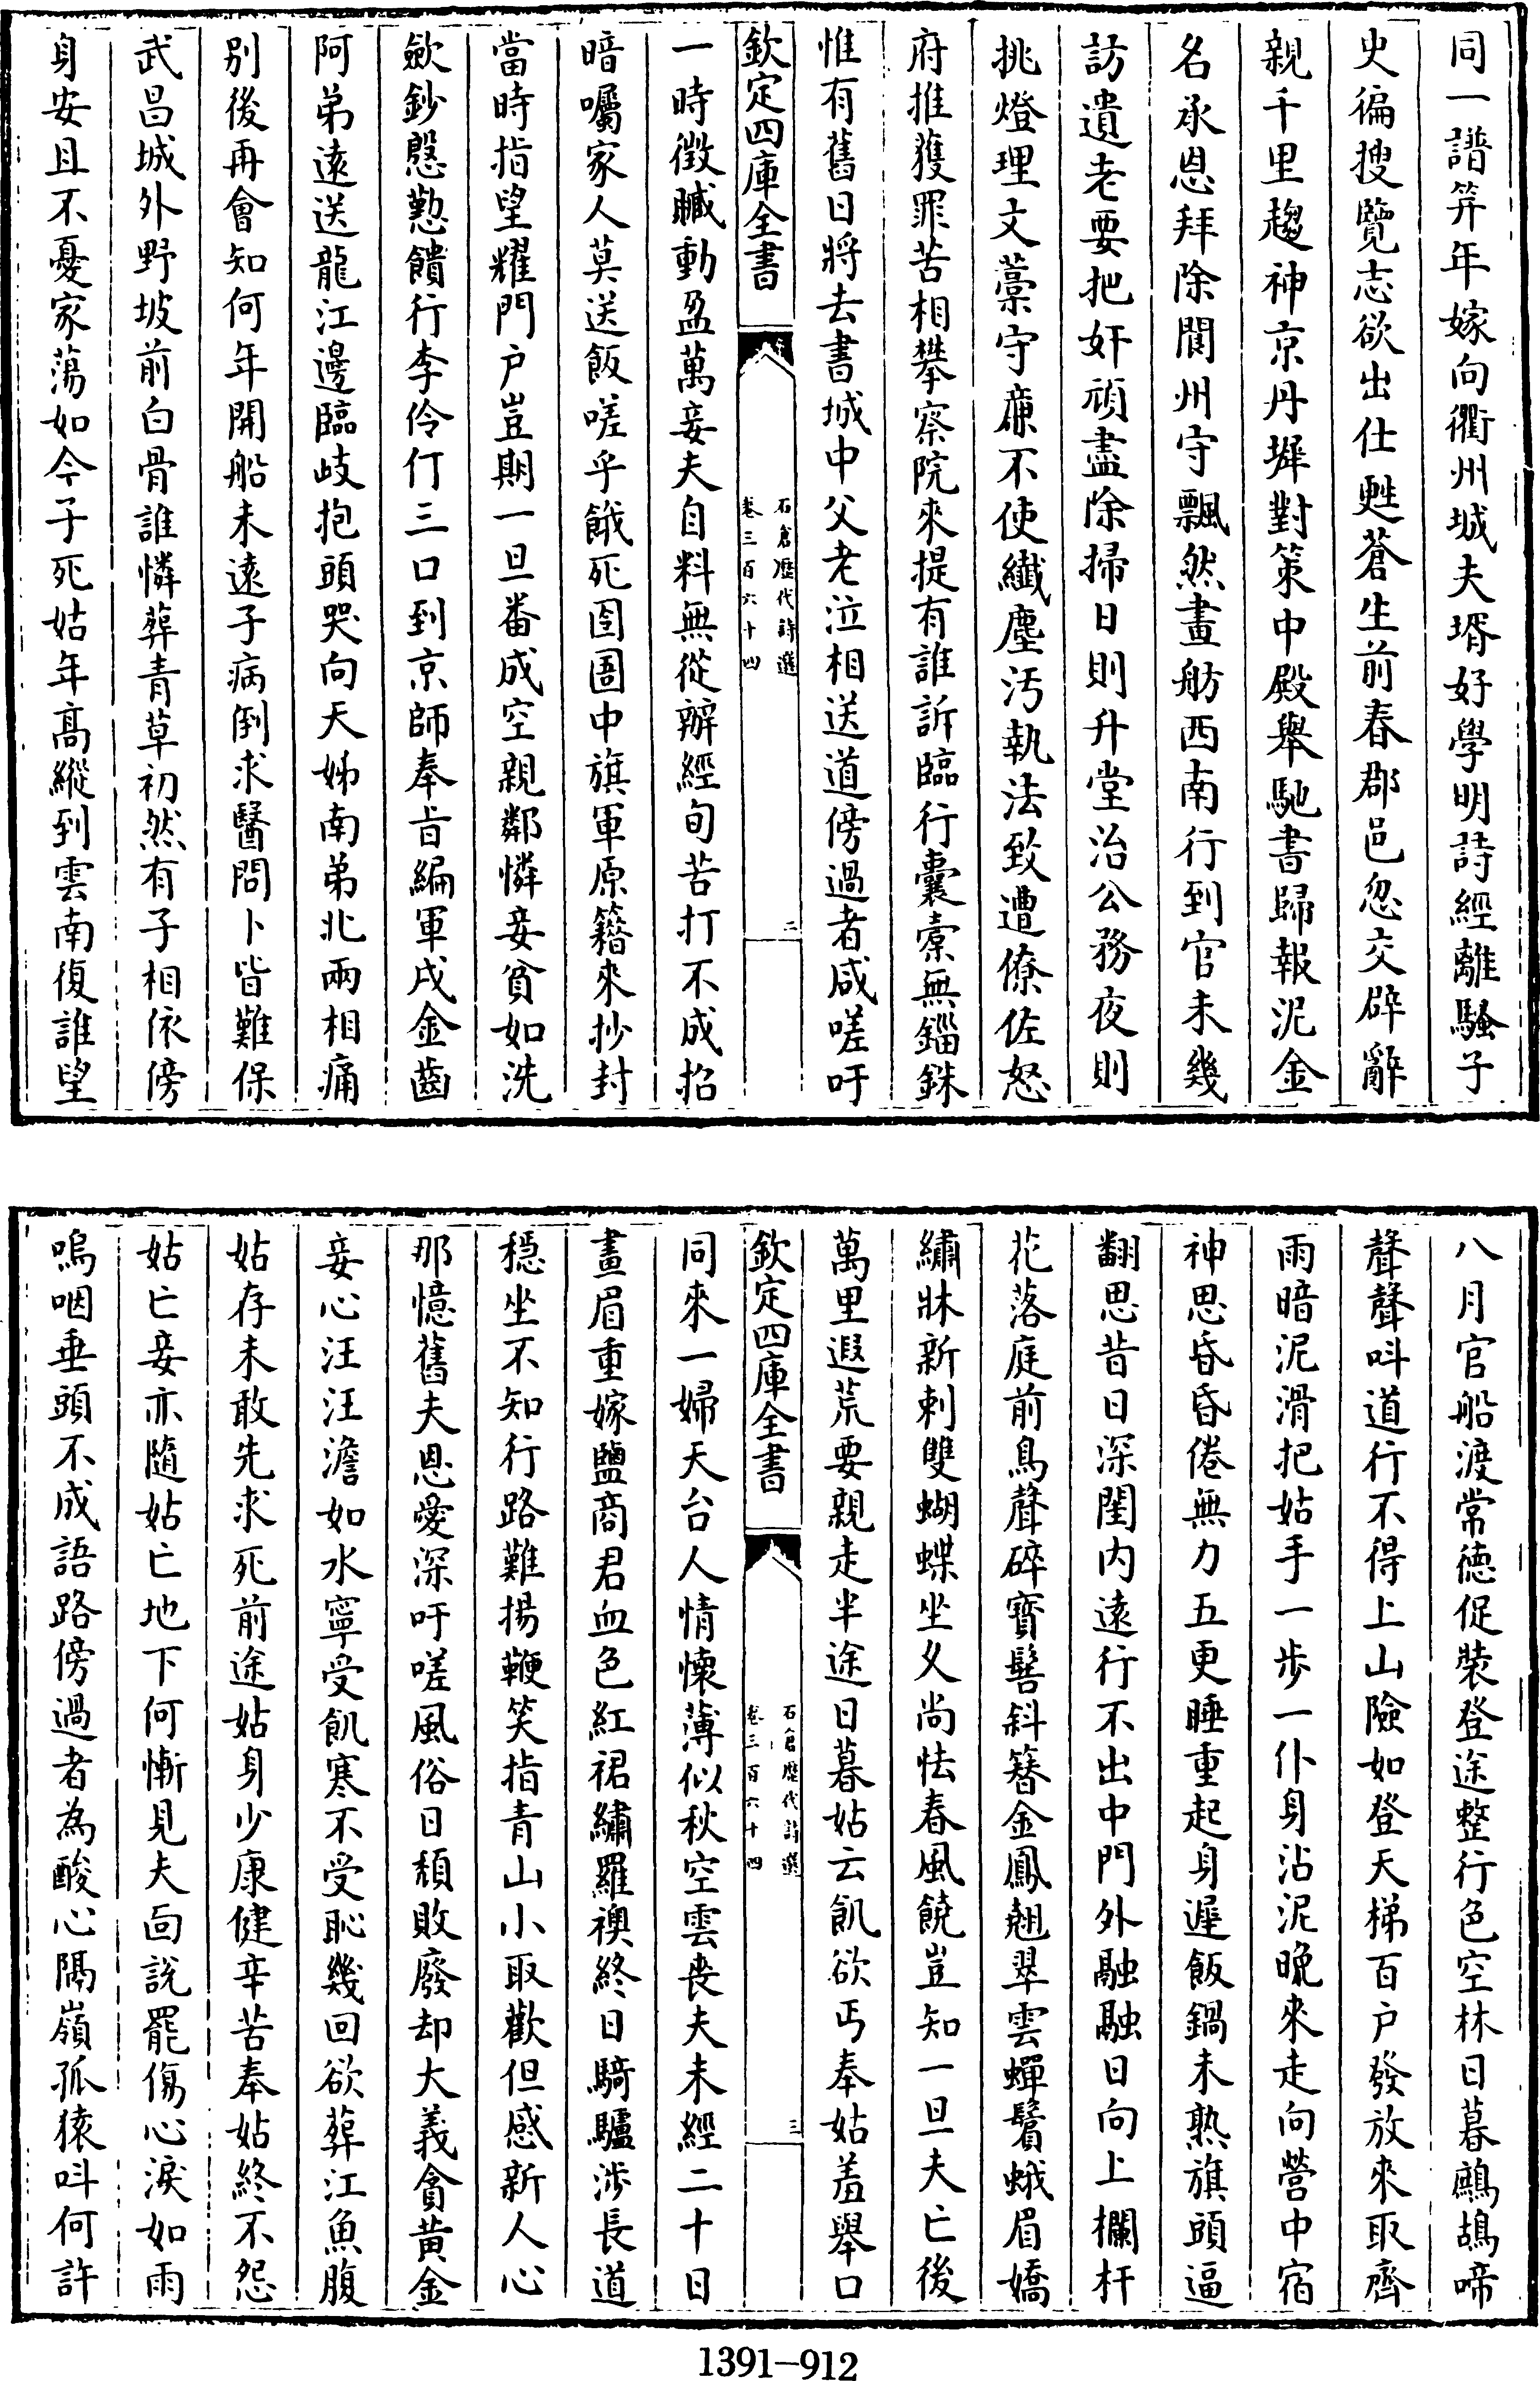 同一譜笄年嫁向衢州城夫壻好學明詩經離騷子
史徧搜覽志欲出仕甦蒼生前春郡邑忽交辟辭
親千里趨神京丹墀對策中殿舉馳書歸報泥金
名承恩拜除閬州守飄然畫舫西南行到官未幾
訪遺老要把奸頑盡除掃日則升堂治公務夜則
挑燈理文藁守廉不使纖塵汚執法致遭僚佐怒
府推獲罪苦相攀察院來提有誰訴臨行囊槖無錙銖
惟有舊日將去書城中父老泣相送道傍過者咸嗟吁
欽定四庫全書
石倉歷代詩選
卷三百六十四
二
一時徵贓動盈萬妾夫自料無從辦經旬苦打不成招
暗囑家人莫送飯嗟乎餓死囹圄中旗軍原籍來抄封
當時指望耀門户豈期一旦番成空親鄰憐妾貧如洗
歛鈔慇懃饋行李伶仃三口到京師奉㫖編軍戍金齒
阿弟遠送龍江邊臨岐抱頭哭向天姊南弟北兩相痛
别後再會知何年開船未遠子病倒求醫問卜皆難保
武昌城外野坡前白骨誰憐葬青草初然有子相依傍
身安且不憂家蕩如今子死姑年髙縱到雲南復誰望
八月官船渡常徳促裝登途整行色空林日暮鷓鴣啼
聲聲呌道行不得上山險如登天梯百户發放來取齊
雨暗泥滑把姑手一步一仆身沾泥晚來走向營中宿
神思昏昏倦無力五更睡重起身遲飯鍋未熟旗頭逼
翻思昔日深閨内遠行不出中門外融融日向上欄杆
花落庭前鳥聲碎寳髻斜簪金鳳翹翠雲蟬鬢蛾眉嬌
繡牀新刺雙蝴蝶坐久尚怯春風饒豈知一旦夫亡後
萬里遐荒要親走半途日暮姑云飢欲丐奉姑羞舉口
欽定四庫全書
石倉歷代詩選
卷三百六十四
三
同來一婦天台人情懷薄似秋空雲喪夫未經二十日
畫眉重嫁鹽商君血色紅裙繡羅襖終日騎驢渉長道
穩坐不知行路難揚鞭笑指青山小取歡但感新人心
那憶舊夫恩愛深吁嗟風俗日頽敗廢却大義貪黄金
妾心汪汪澹如水寧受飢寒不受恥幾回欲葬江魚腹
姑存未敢先求死前途姑身少康健辛苦奉姑終不怨
姑亡妾亦隨姑亡地下何慚見夫面説罷傷心淚如雨
嗚咽垂頭不成語路傍過者為酸心隔嶺孤猿呌何許
1391-912